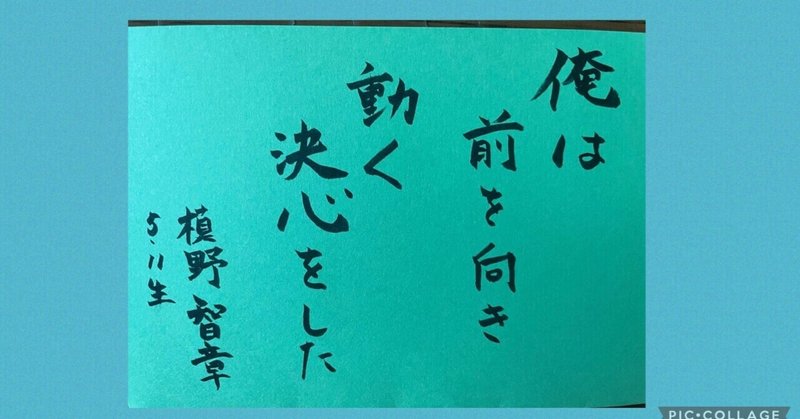 俺は
前を向き
動く
決心をした
槙野智章
5.11生
PIC•COLLAGE